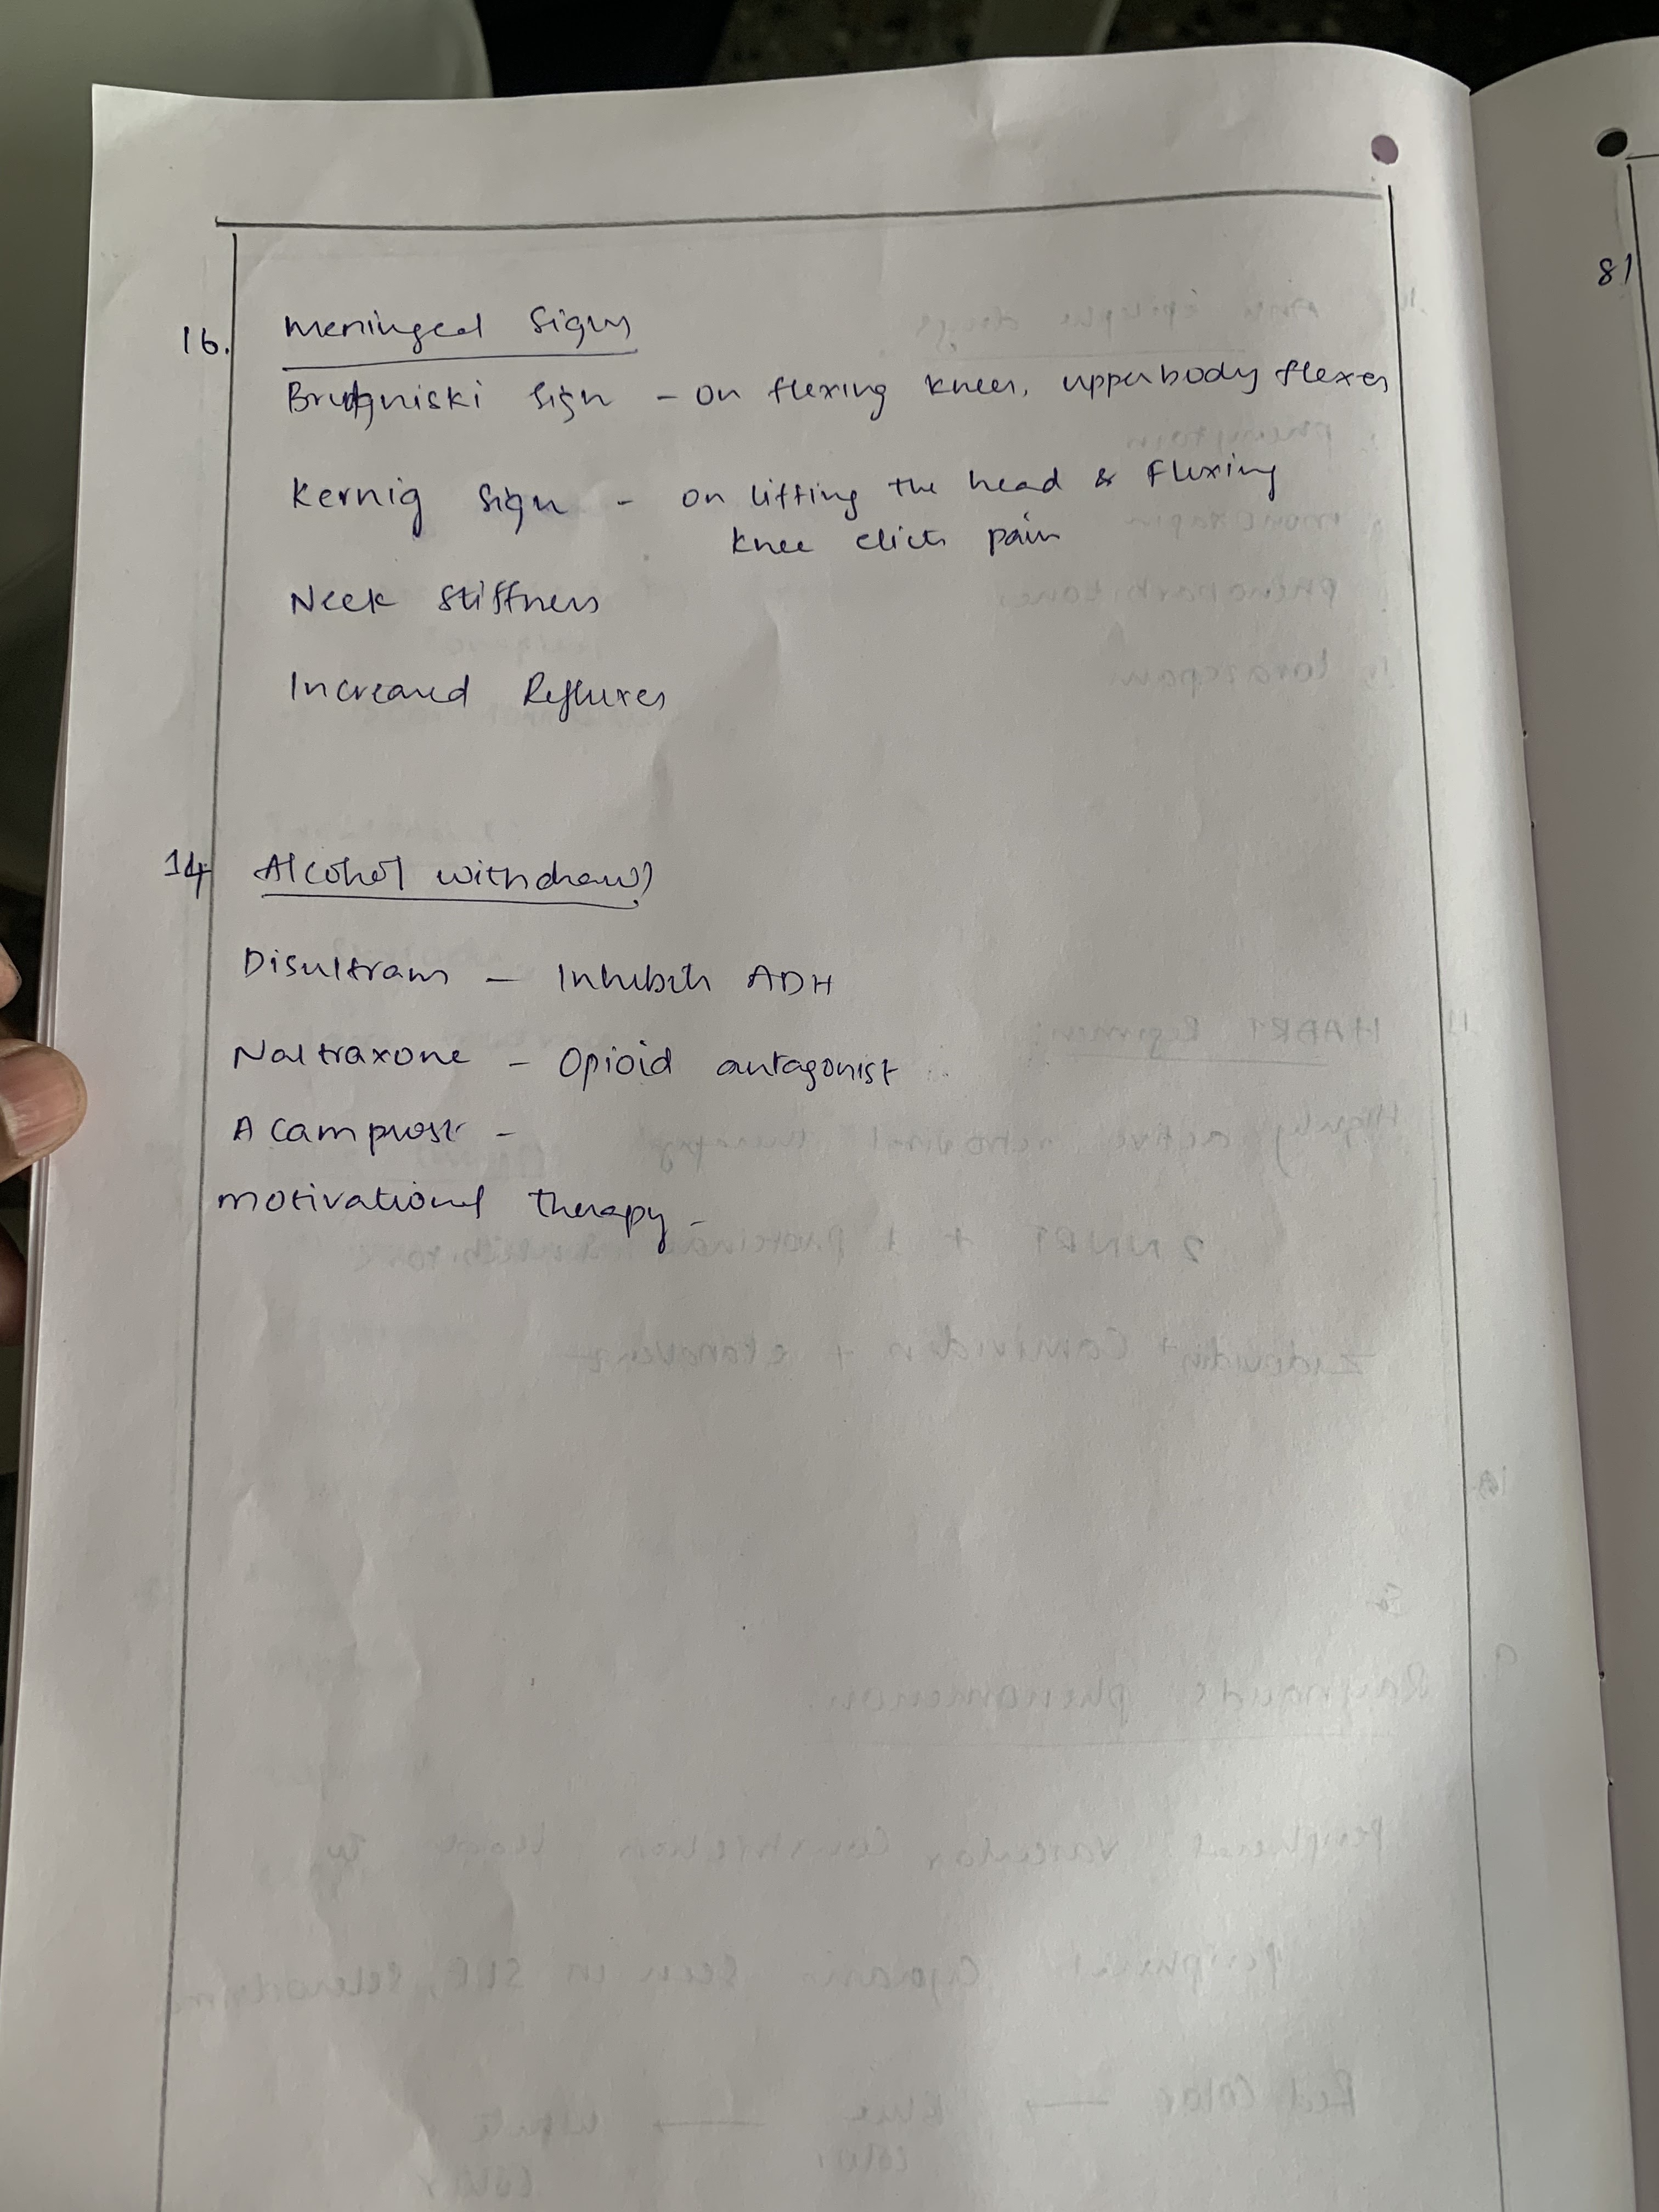 16. Meningeal Signs
Brudgniski sign - On flexing knees, upper body flexes
Kernig sign - on lifting the head & flexing
knee elicits pain
Neck stiffness
Increased Reflexes
14 Alcohol withdrawl
Disulfram - Inhibits ADH
Naltraxone - Opioid antagonist
Acamprost -
motivational therapy -
81